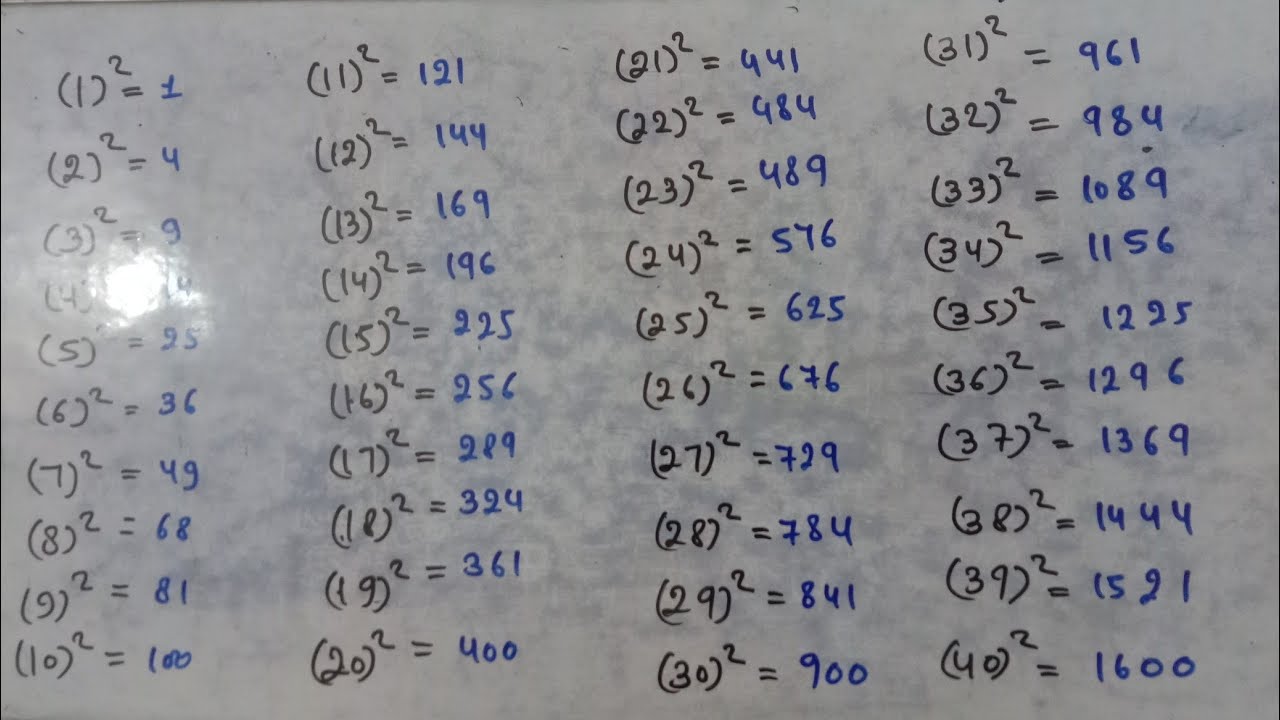 (1)² = 1
(2)² = 4
(3)² = 9
(4)
(5)² = 25
(6)² = 36
(7)² = 49
(8)² = 68
(9)² = 81
(10)² = 100
(11)² = 121
(12)² = 144
(13)² = 169
(14)² = 196
(15)² = 225
(16)² = 256
(17)² = 289
(18)² = 324
(19)² = 361
(20)² = 400
(21)² = 441
(22)² = 484
(23)² = 489
(24)² = 576
(25)² = 625
(26)² = 676
(27)² = 729
(28)² = 784
(29)² = 841
(30)² = 900
(31)² = 961
(32)² = 984
(33)² = 1089
(34)² = 1156
(35)² = 1225
(36)² = 1296
(37)² = 1369
(38)² = 1444
(39)² = 1521
(40)² = 1600